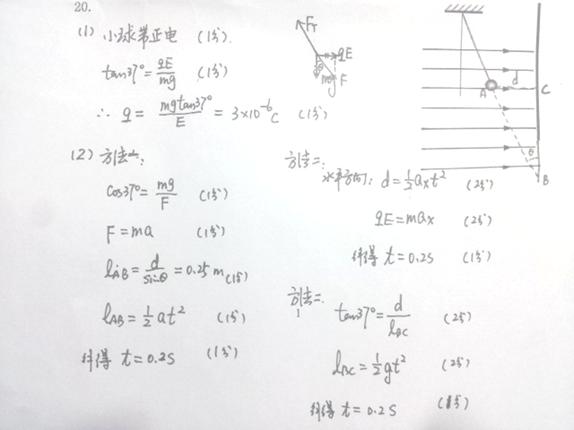 20.
(1) 小球带正电 (1分)
tan37°=qE/mg (1分)
∴ q=mgtan37°/E=3×10⁻⁶C (1分)
F_T
qE
θ
mg
F
A
d
C
θ
B
(2) 方法一:
cos37°=mg/F (1分)
F=ma (1分)
l_AB=d/sinθ=0.25m (1分)
l_AB=½at² (1分)
解得 t=0.2S (1分)
方法二:
水平方向: d=½a_xt² (2分)
qE=ma_x (2分)
解得 t=0.2S (1分)
方法三:
tan37°=d/l_BC (2分)
l_BC=½gt² (2分)
解得 t=0.2S (1分)